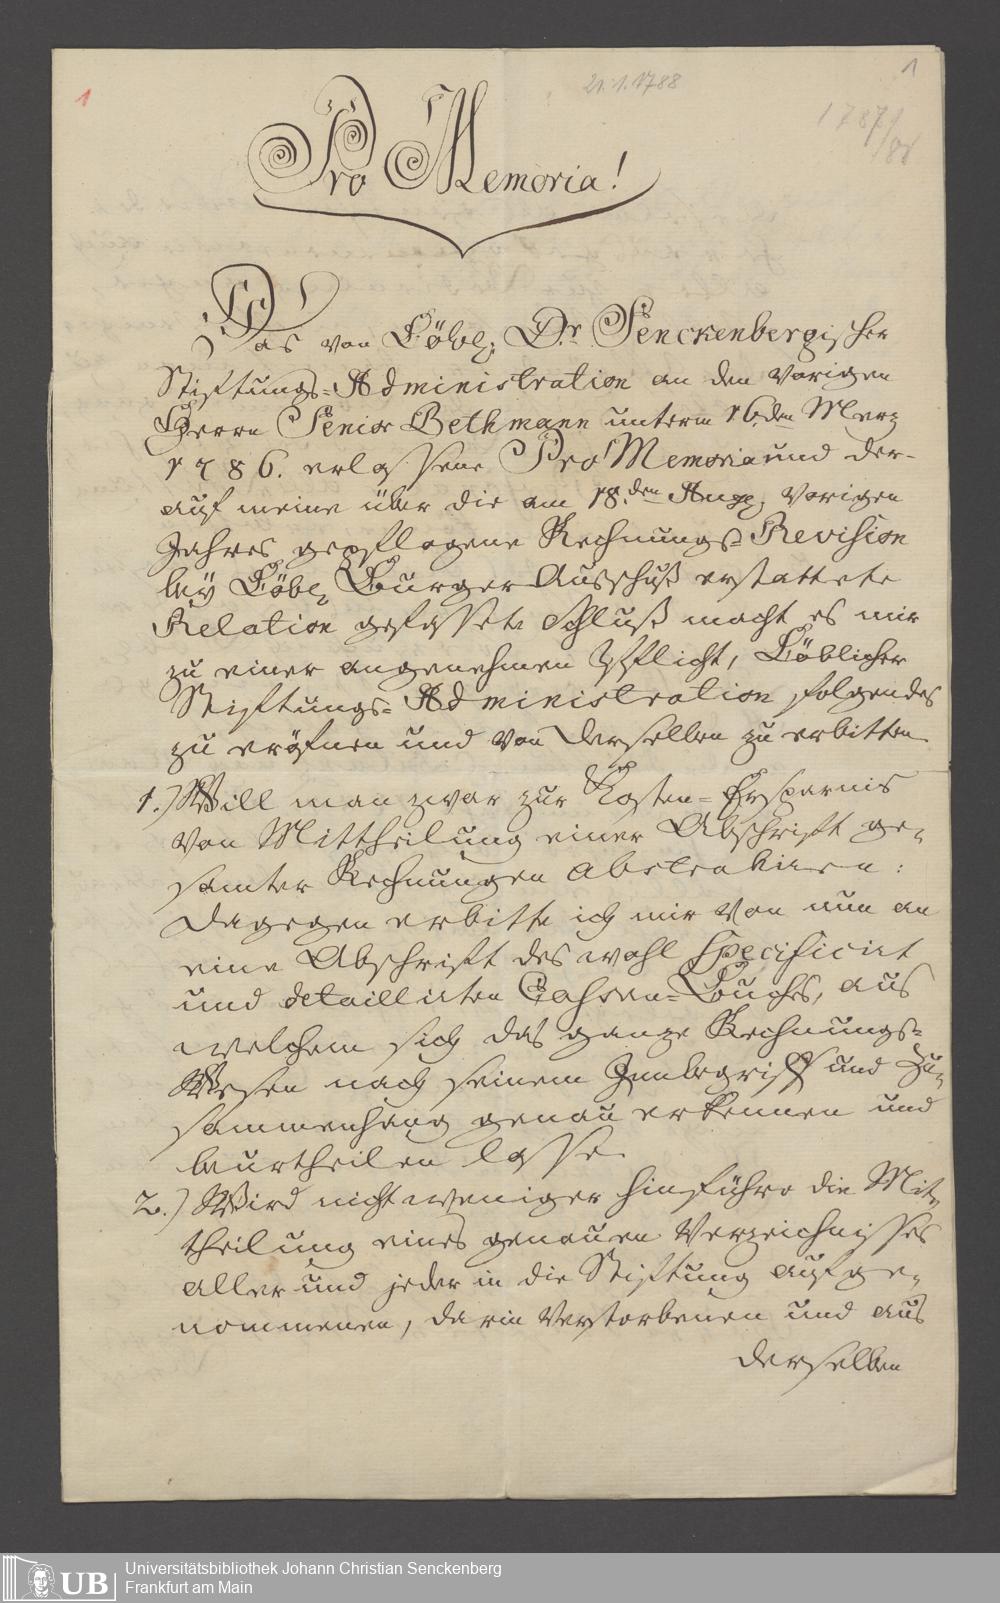 1
21.1.1788
1
1787/88
Pro Memoria!
Das von Löbl. Dr. Senckenbergischer
Stiftungs-Administration an den vorigen
Herrn Senior Bethmann unterm 16.den Merz
1786. erlassene Pro Memoria und der-
auf meine über die am 18.den Aug. vorigen
Jahres gepflogene Rechnungs-Revision
bey Löbl. Burger Ausschuß erstattete
Relation gefassete Schluß macht es mir
zu einer angenehmen Pflicht, Löblicher
Stiftungs-Administration folgendes
zu eröfnen und von derselben zu erbitten
1.) Will man zwar zur Kosten-Ersparnis
von Mittheilung einer Abschrift ge-
samter Rechnungen abstrahiren:
dagegen erbitte ich mir von nun an
eine Abschrift des wohl specificirt
und detaillirten Cassen-Buchs, aus
welchem sich das ganze Rechnungs-
Wesen nach seinem Innbegriff und Zu-
sammenhang genau erkennen und
beurtheilen lasse.
2.) Wird nicht weniger hinführo die Mit-
theilung eines genauen Verzeichnisses
aller und jeder in die Stiftung aufge-
nommenen, darin verstorbenen und aus
derselben
UB
Universitätsbibliothek Johann Christian Senckenberg
Frankfurt am Main